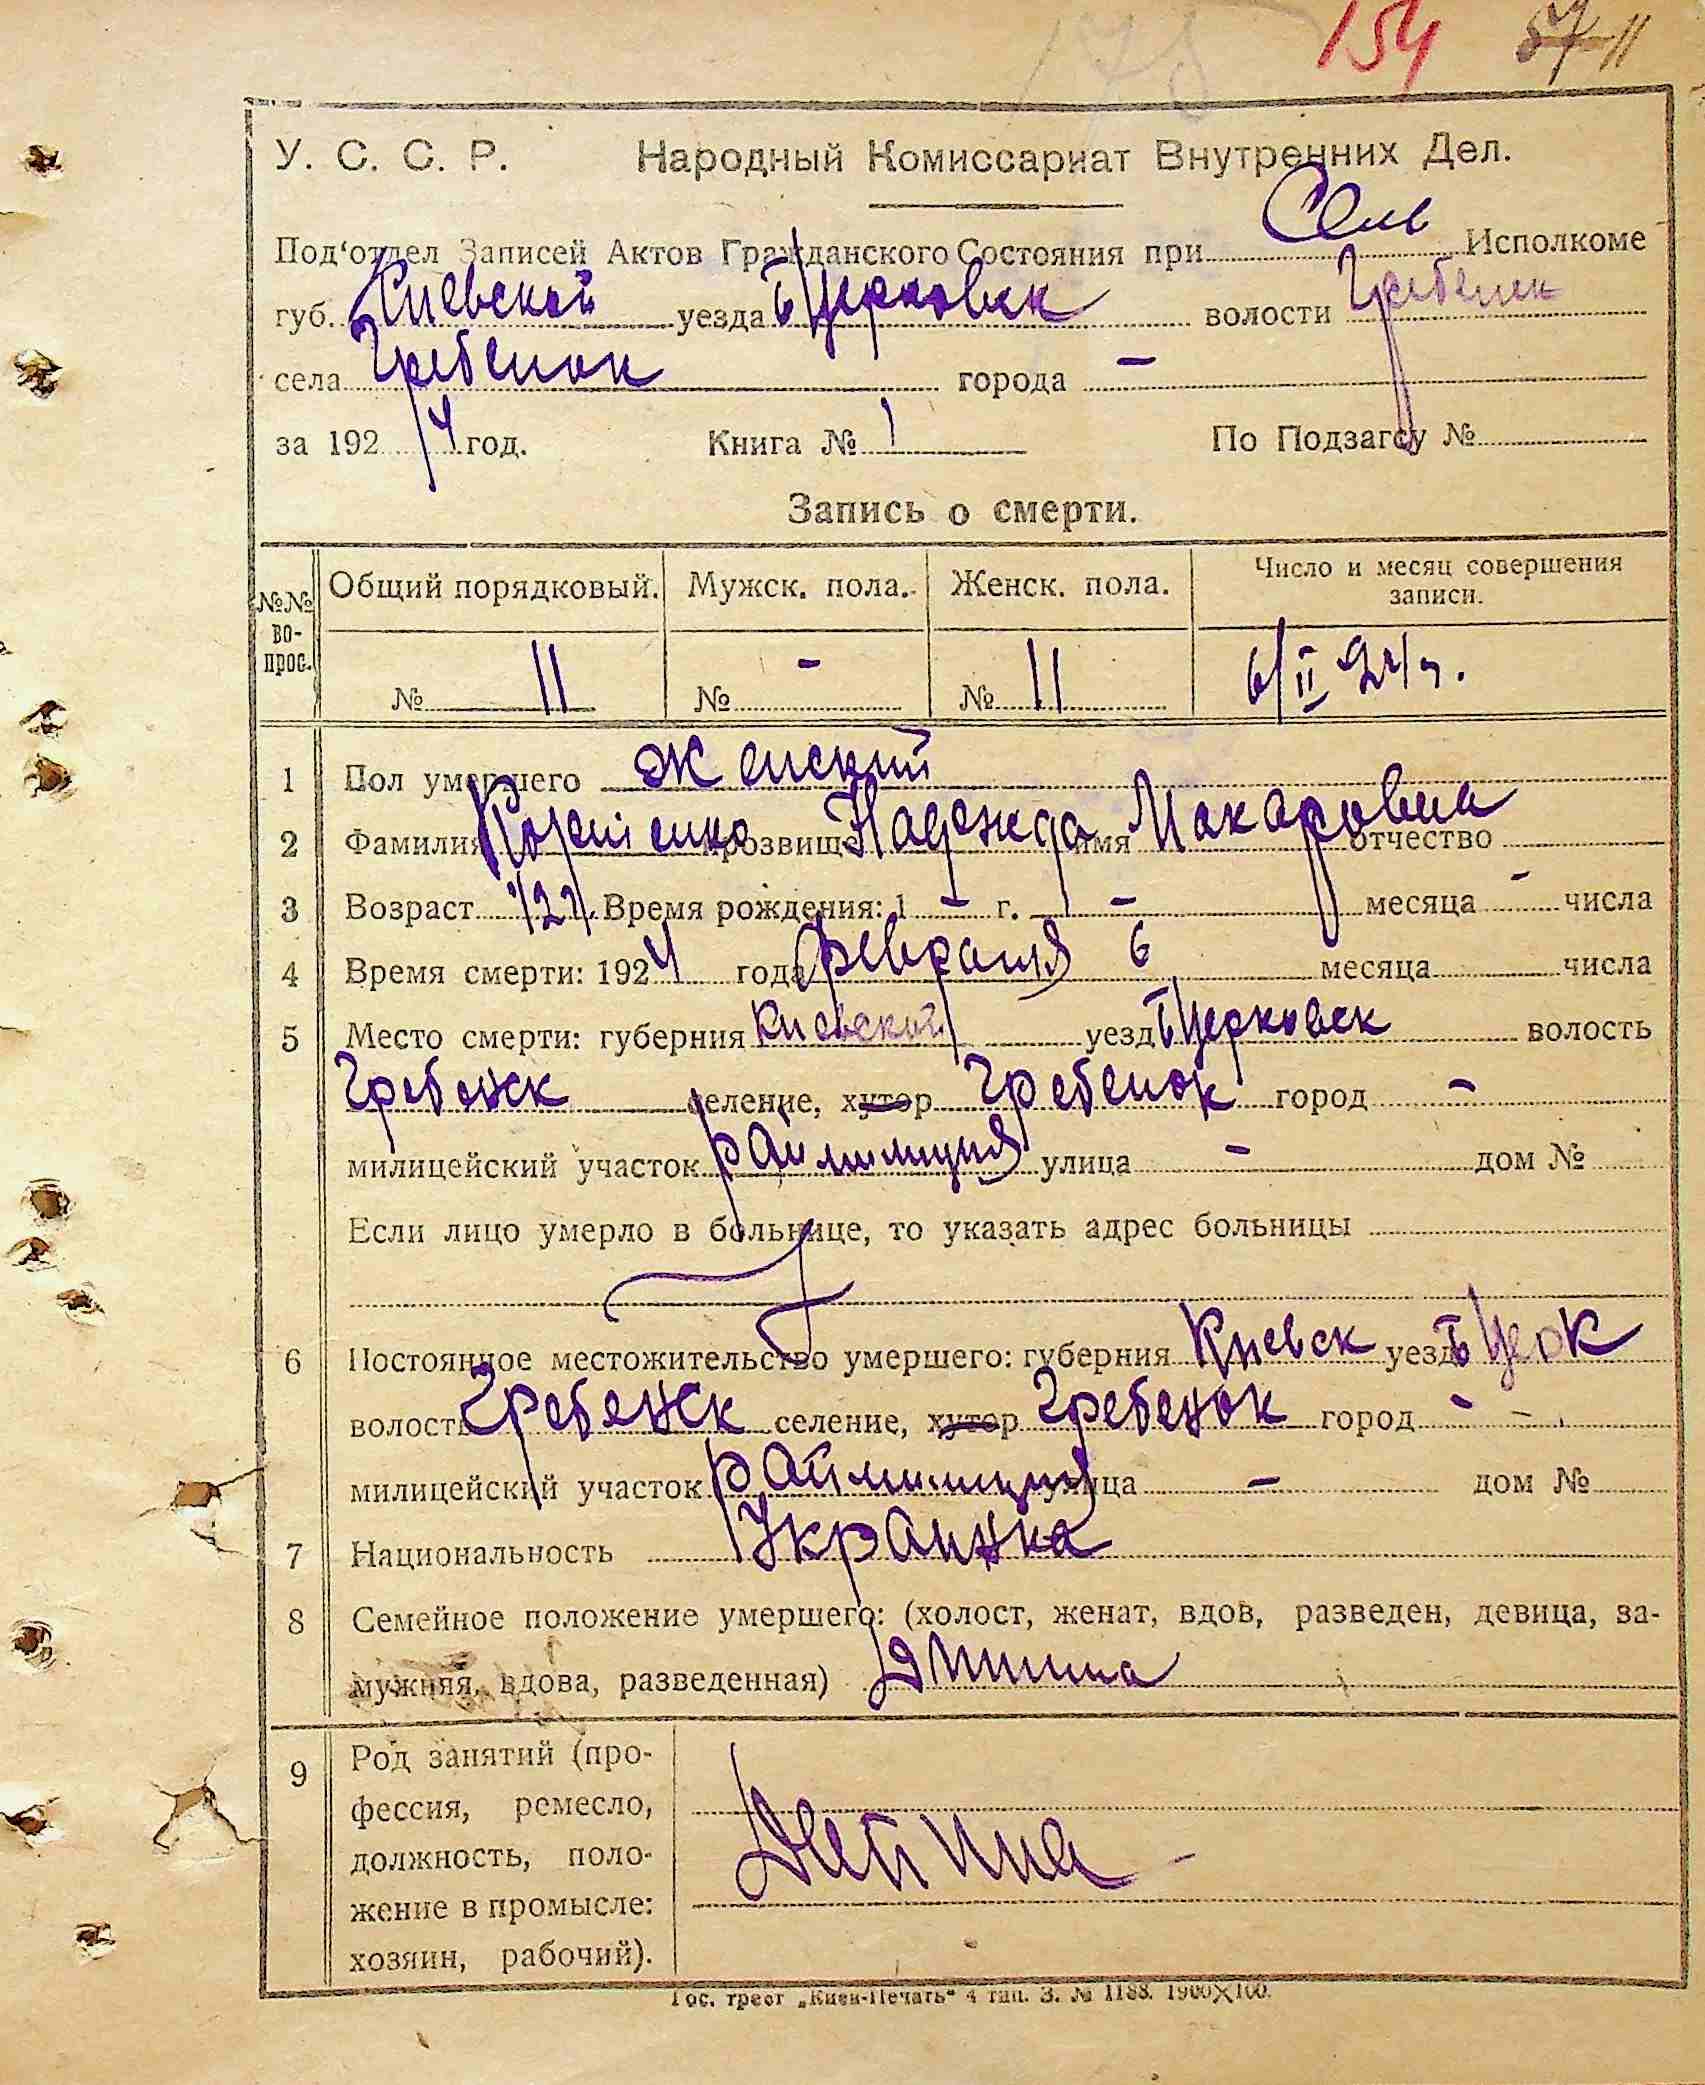 178 154 57 11
У. С. С. Р. Народный Комиссариат Внутренних Дел.
Под'отдел Записей Актов Гражданского Состояния при Сель Исполкоме
губ. Киевской уезда Б Церковск волости Гребенск
села Гребенок города -
за 1924 год. Книга № 1 По Подзагсу №
Запись о смерти.
№№ во-прос. Общий порядковый. Мужск. пола. Женск. пола. Число и месяц совершения записи.
№ 11 № - № 11 6/II 24 г.
1 Пол умершего Женский
2 Фамилия прозвище Надежда имя Макаровна отчество
3 Возраст Время рождения: 1 - г. - месяца - числа
4 Время смерти: 1924 года февраля 6 месяца числа
5 Место смерти: губерния Киевской уезд Б Церковск волость
Гребенск селение, хутор Гребенок город -
милицейский участок Раймилиция улица - дом №
Если лицо умерло в больнице, то указать адрес больницы
6 Постоянное местожительство умершего: губерния Киевск уезд Б Церк
волость Гребенск селение, хутор Гребенок город -
милицейский участок Раймилиция улица - дом №
7 Национальность Украинка
8 Семейное положение умершего: (холост, женат, вдов, разведен, девица, за-
мужняя, вдова, разведенная) Дитина
9 Род занятий (про-
фессия, ремесло,
должность, поло-
жение в промысле:
хозяин, рабочий).
Дитина -
Гос. трест „Киев-Печать" 4 тип. З. № 1188. 1900X100.